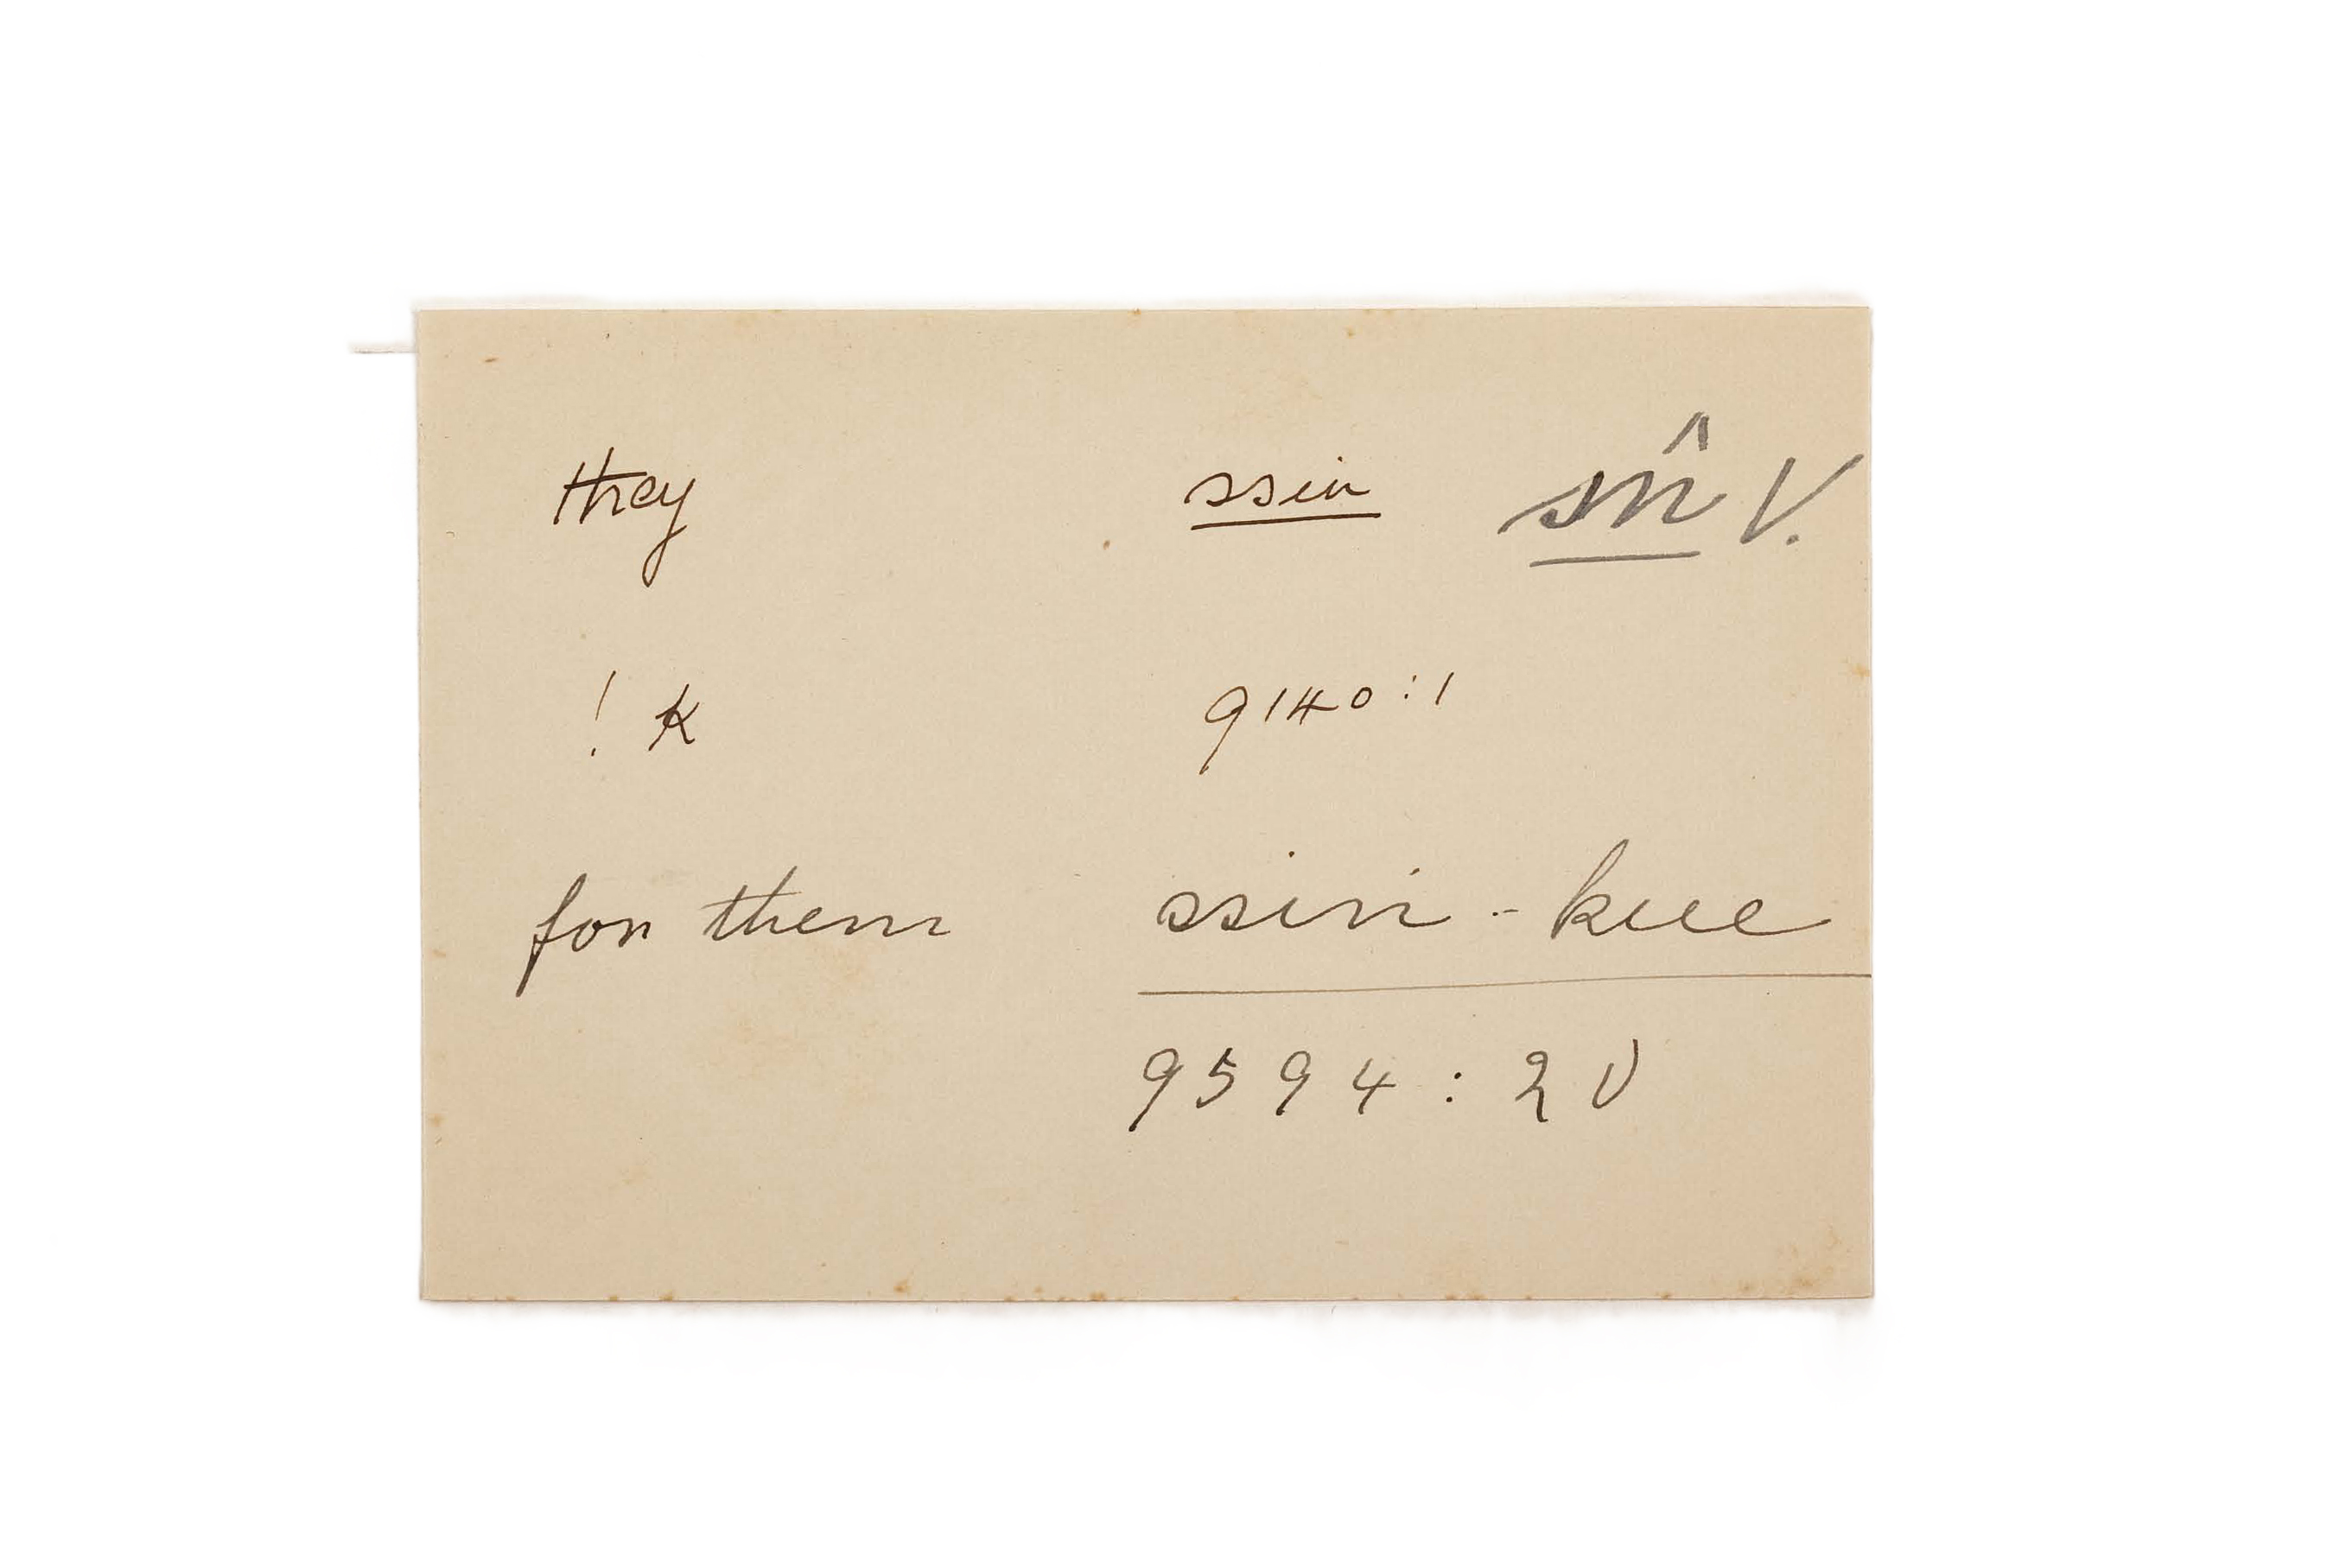 they ssin sîn V.
! K 9140:1
for them ssin-kue
9594:2 V